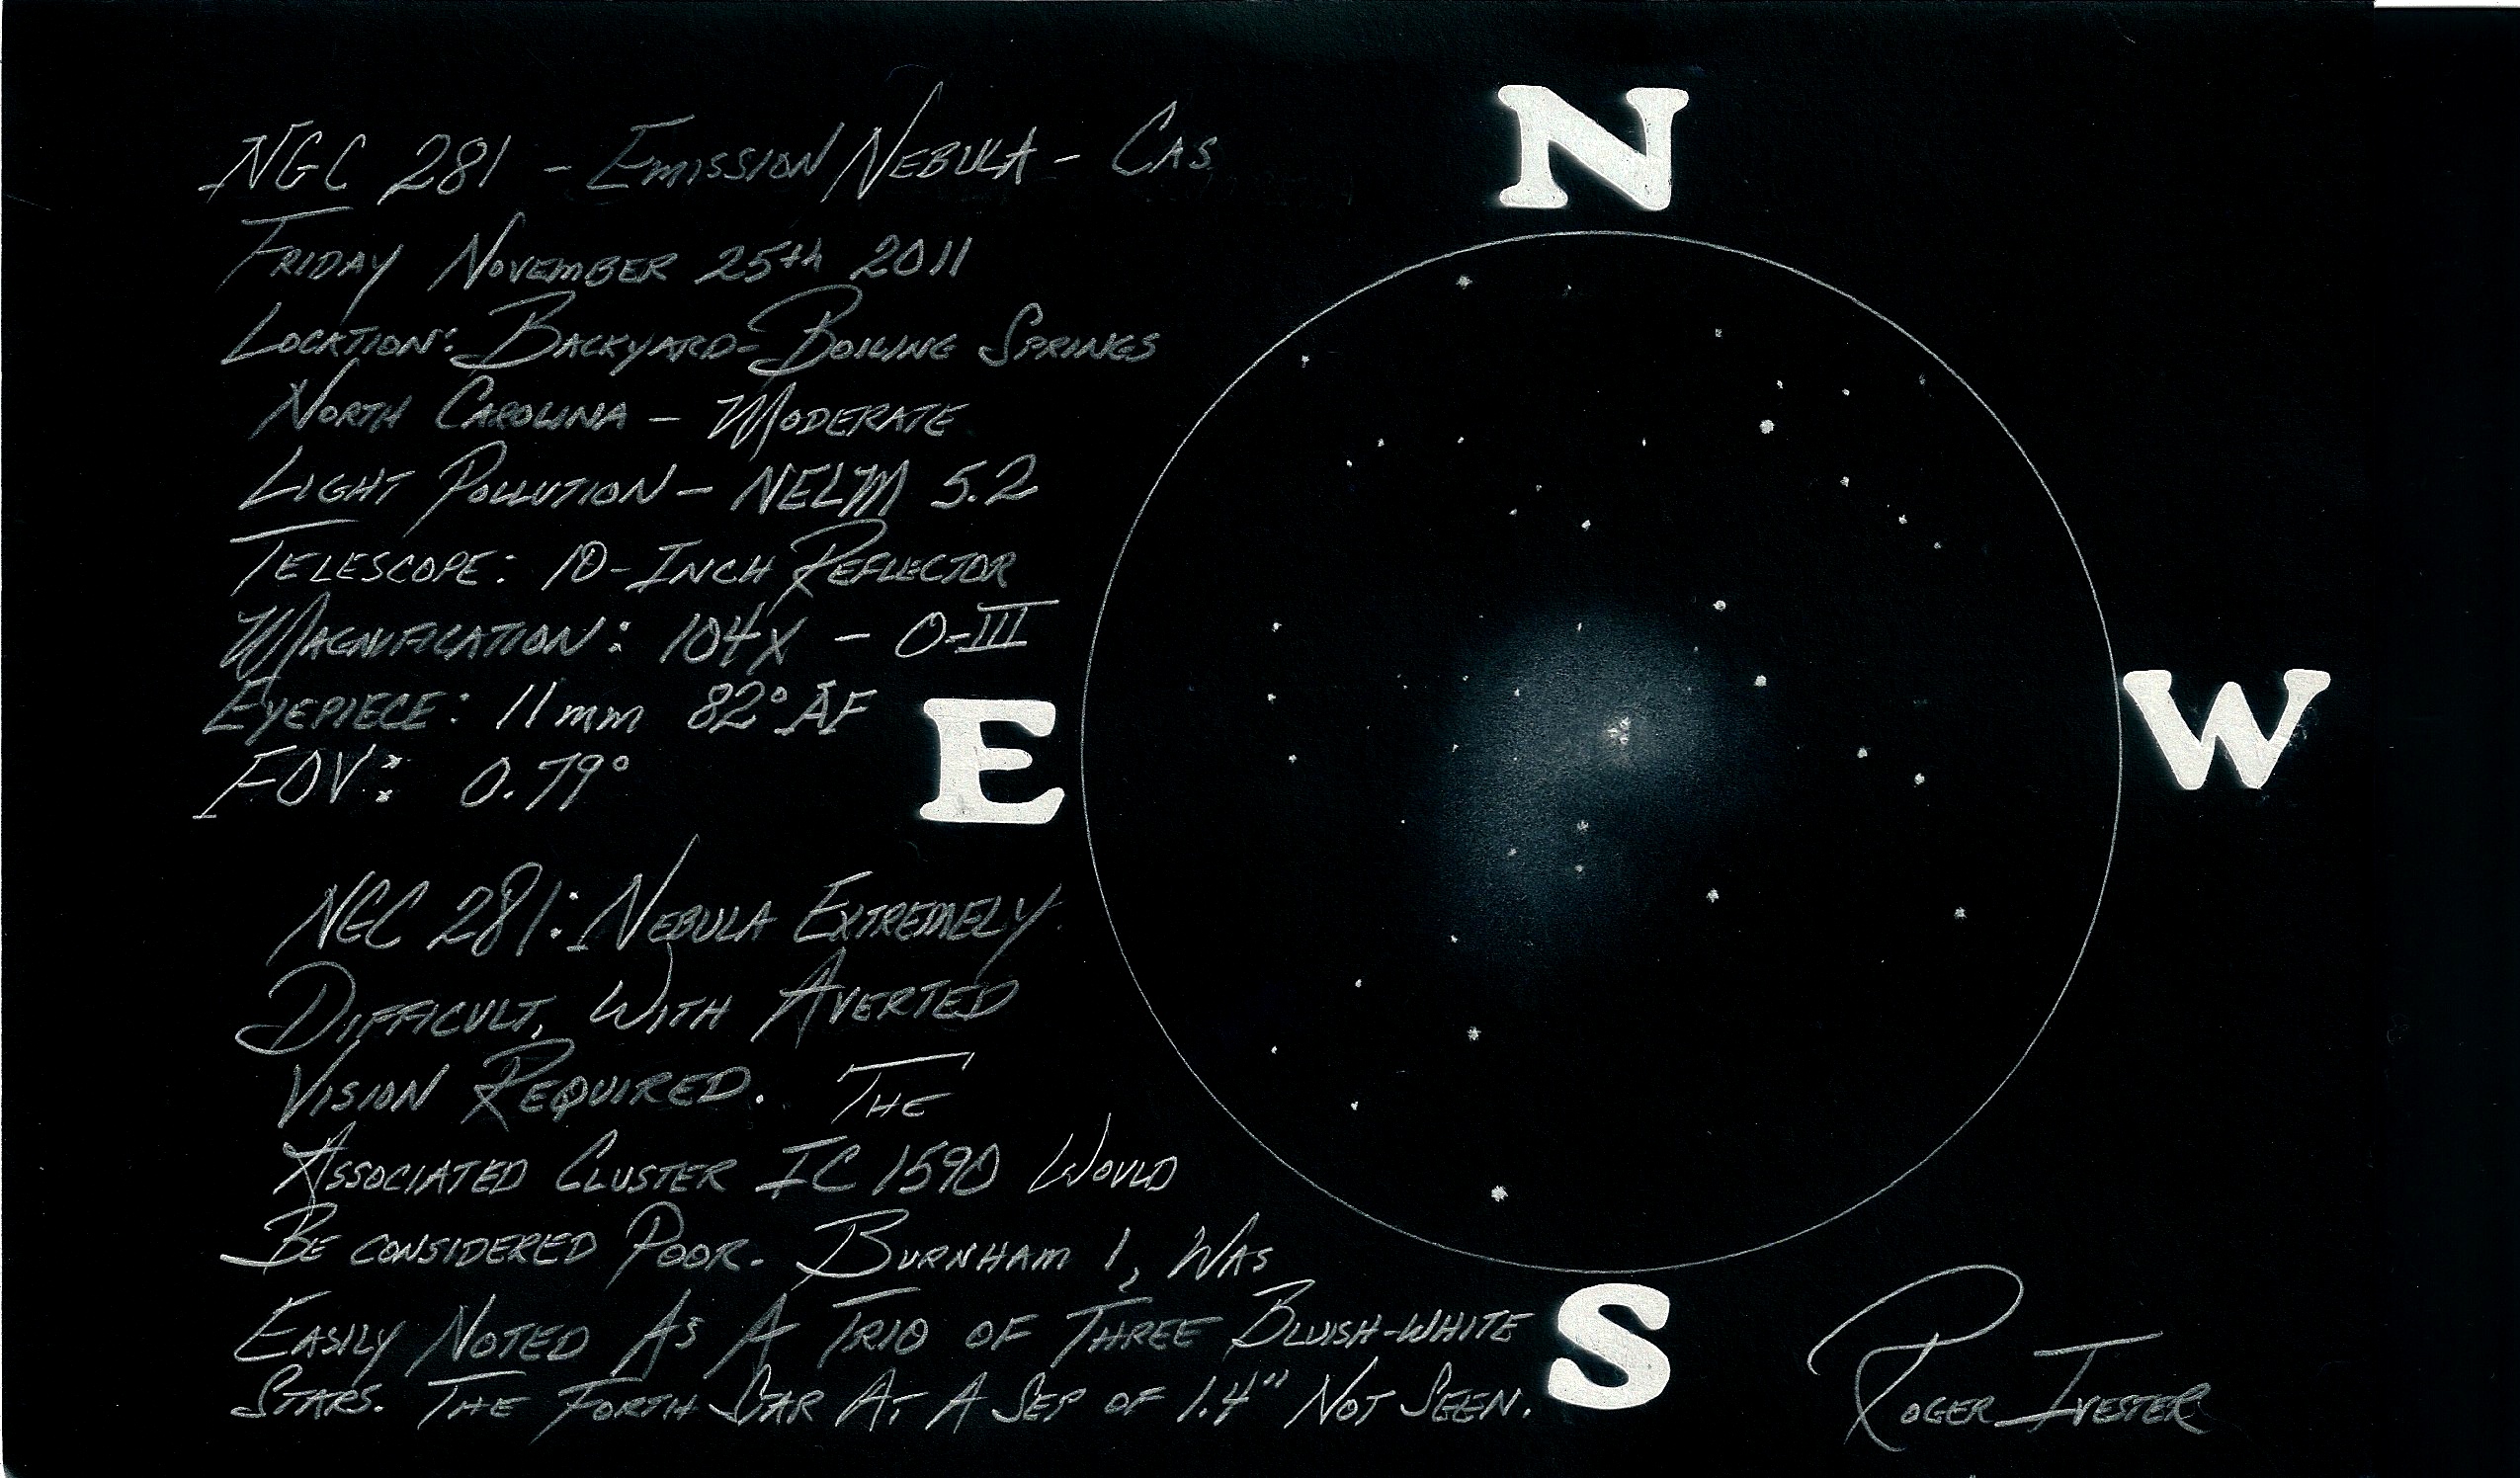 NGC 281 - Emission Nebula - Cas
Friday November 25th 2011
Location: Backyard - Boiling Springs
North Carolina - Moderate
Light Pollution - NELM 5.2
Telescope: 10-Inch Reflector
Magnification: 104X - O-III
Eyepiece: 11mm 82° AF
FOV: 0.79°
NGC 281: Nebula Extremely
Difficult, With Averted
Vision Required. The
Associated Cluster IC 1590 Would
Be considered Poor. Burnham 1, Was
Easily Noted As A Trio of Three Bluish-white
Stars. The Forth Star At A Sep of 1.4" Not Seen.
N
E
W
S
Roger Ivester